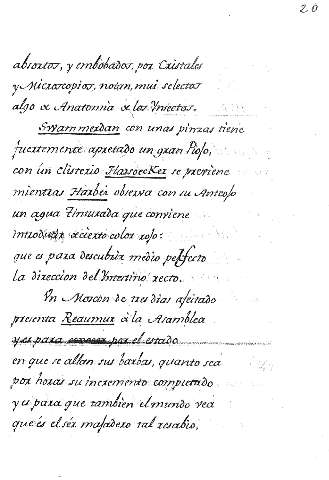 20
absortos, y embobados, por Cristales
y Microscopios, notan, mui selectos
algo de Anatomia de los Ynsectos.
Swammerdan con unas pinzas tiene
fuertemente apretado un gran Piojo,
con un clisterio Harsoecker se previene
mientras Harbei observa con su Anteojo
un agua Tinturada que conviene
introducir de cierto color rojo:
que es para descubrir medio perfecto
la direccion del Yntestino recto.
Un Moscon de tres dias afeitado
presenta Reaumur à la Asamblea
y es para por el estado
en que se allan sus barbas, quanto sea
por horas su incremento computado
y es para que tambien el mundo vea
que es el sér majadero tal resabio,